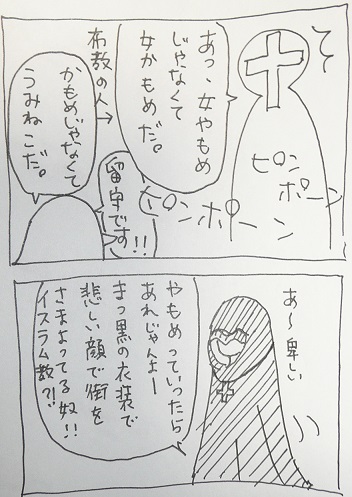 て
あっ、女やもめ
じゃなくて
女かもめだ。
布教の人→
かもめじゃなくて
うみねこだ。
ピンポーン
ピンポーン
留守です!!
あ〜卑しい
やもめっていったら
あれじゃんよー
まっ黒の衣装で
悲しい顔で街を
さまよってる奴!!
イスラム教?!